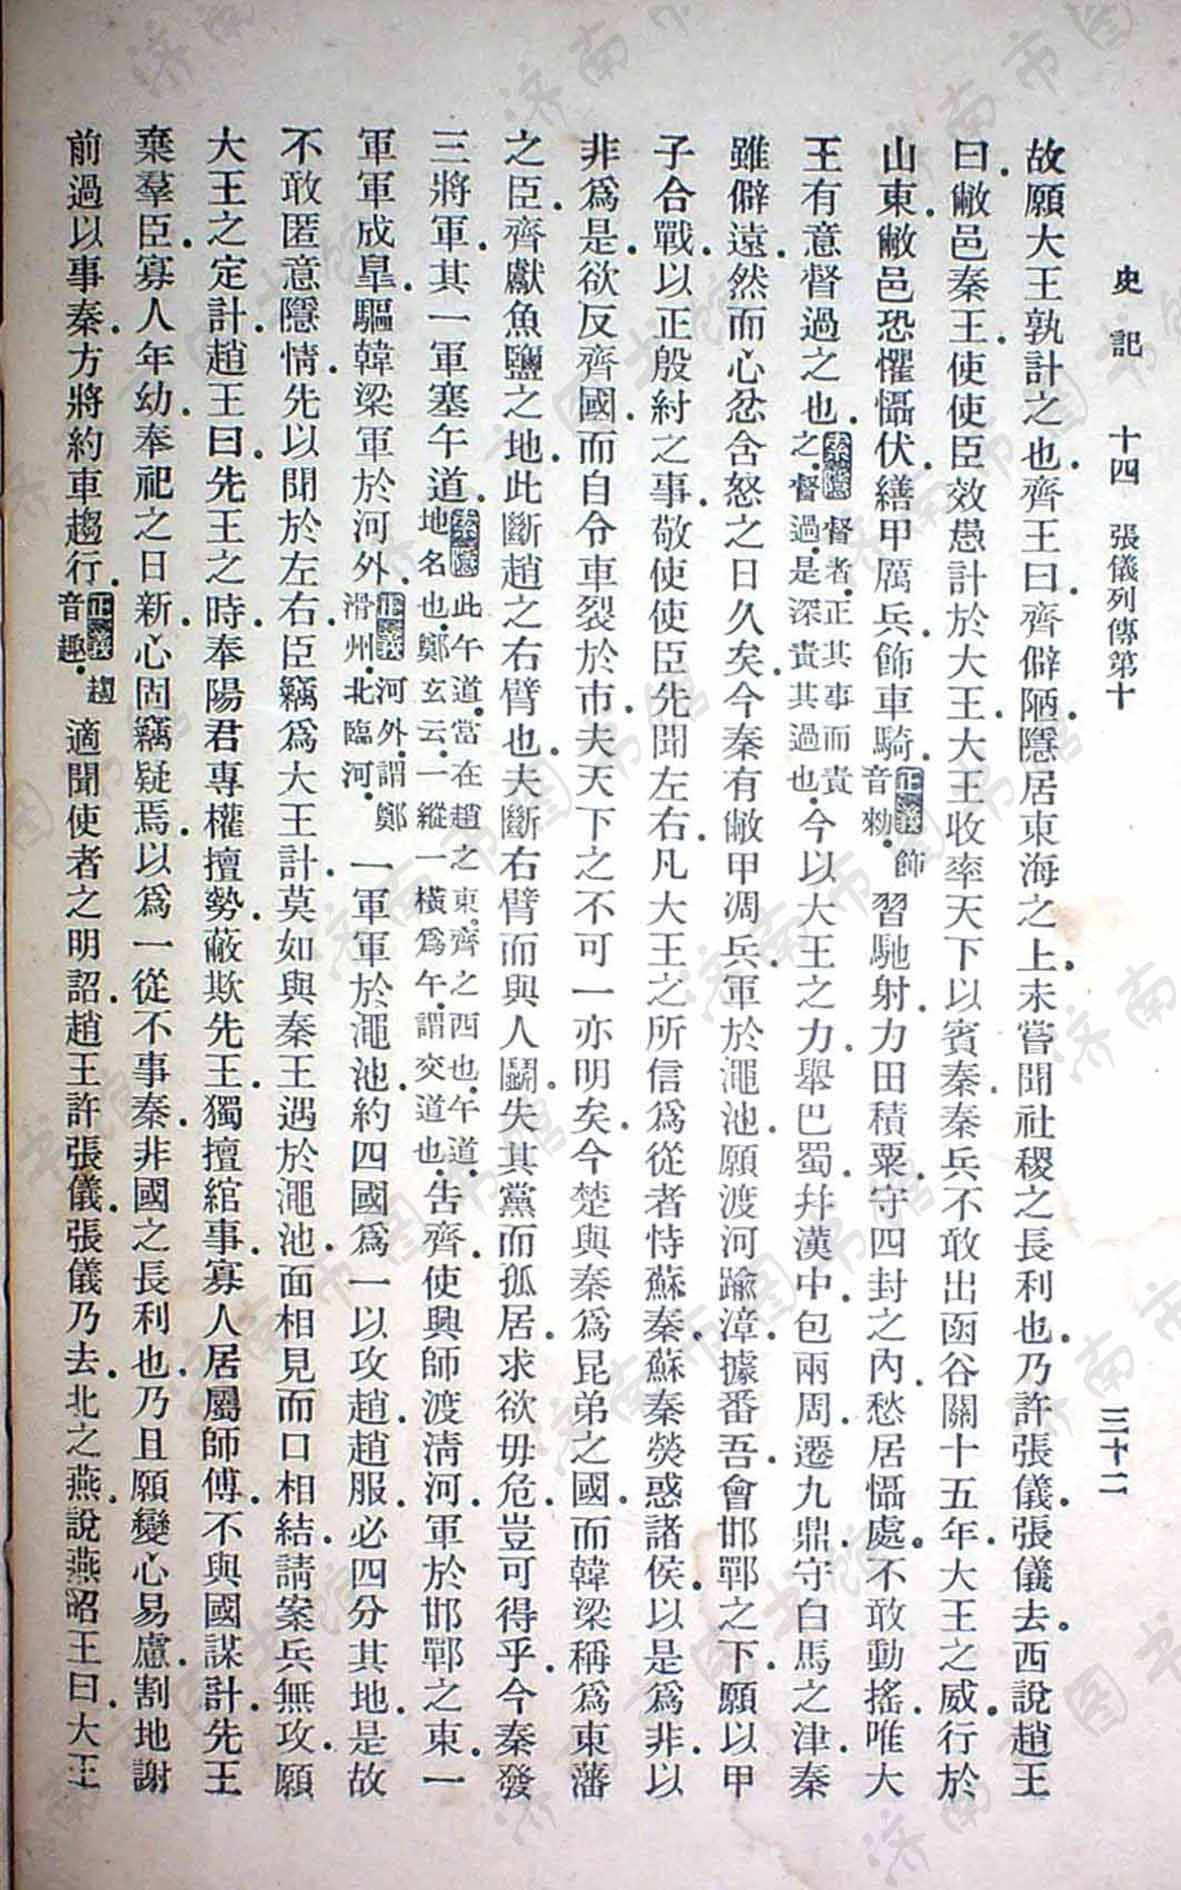 史記 十四 張儀列傳第十 三十二
故願大王孰計之也.齊王曰.齊僻陋.隱居東海之上.未嘗聞社稷之長利也.乃許張儀.張儀去.西說趙王
曰.敝邑秦王.使使臣效愚計於大王.大王收率天下以賓秦.秦兵不敢出函谷關十五年.大王之威.行於
山東.敝邑恐懼懾伏.繕甲厲兵.飾車騎.正義飾音勑.習馳射.力田積粟.守四封之內.愁居懾處.不敢動搖.唯大
王有意督過之也.索隱督者.正其事而責之.督過.是深責其過也.今以大王之力.舉巴蜀.幷漢中.包兩周.遷九鼎.守白馬之津.秦
雖僻遠.然而心忿含怒之日久矣.今秦有敝甲凋兵.軍於澠池.願渡河踰漳.據番吾.會邯鄲之下.願以甲
子合戰.以正殷紂之事.敬使使臣.先聞左右.凡大王之所信爲從者恃蘇秦.蘇秦熒惑諸侯.以是爲非.以
非爲是.欲反齊國.而自令車裂於市.夫天下之不可一亦明矣.今楚與秦爲昆弟之國.而韓梁稱爲東藩
之臣.齊獻魚鹽之地.此斷趙之右臂也.夫斷右臂而與人鬭.失其黨而孤居.求欲毋危.豈可得乎.今秦發
三將軍.其一軍塞午道.索隱此午道.當在趙之東.齊之西也.午道.地名也.鄭玄云.一縱一橫爲午.謂交道也.告齊.使興師渡淸河.軍於邯鄲之東.一
軍軍成皐.驅韓梁軍於河外.正義河外.謂鄭滑州.北臨河.一軍軍於澠池.約四國爲一以攻趙.趙服.必四分其地.是故
不敢匿意隱情.先以聞於左右.臣竊爲大王計.莫如與秦王遇於澠池.面相見而口相結.請案兵無攻.願
大王之定計.趙王曰.先王之時.奉陽君專權擅勢.蔽欺先王.獨擅綰事.寡人居屬師傅.不與國謀計.先王
棄羣臣.寡人年幼.奉祀之日新.心固竊疑焉.以爲一從不事秦.非國之長利也.乃且願變心易慮.割地謝
前過以事秦.方將約車趨行.正義趨音趣.適聞使者之明詔.趙王許張儀.張儀乃去.北之燕.說燕昭王曰.大王